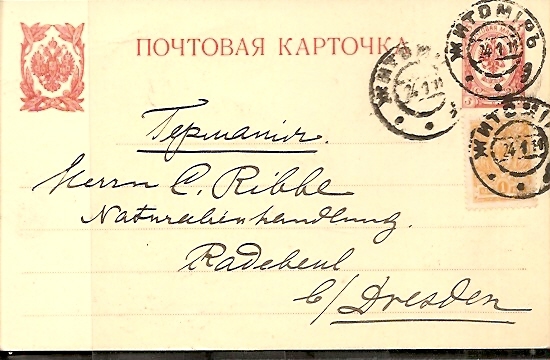 ПОЧТОВАЯ КАРТОЧКА
ЖИТОМІРЪ
24 1
ЖИТОМ
24 1
ЖИТОМІ
24 1
Германія.
Herrn C. Ribbe
Naturalienhandlung.
Radebeul
b/Dresden